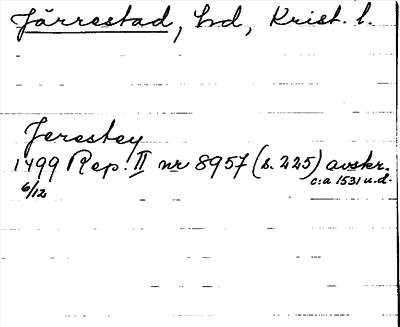 Järrestad, hd, Krist. l.
Jerestey
1499 Rep. II nr 8957 (s. 225) avskr.
6/12 c:a 1531 u.d.